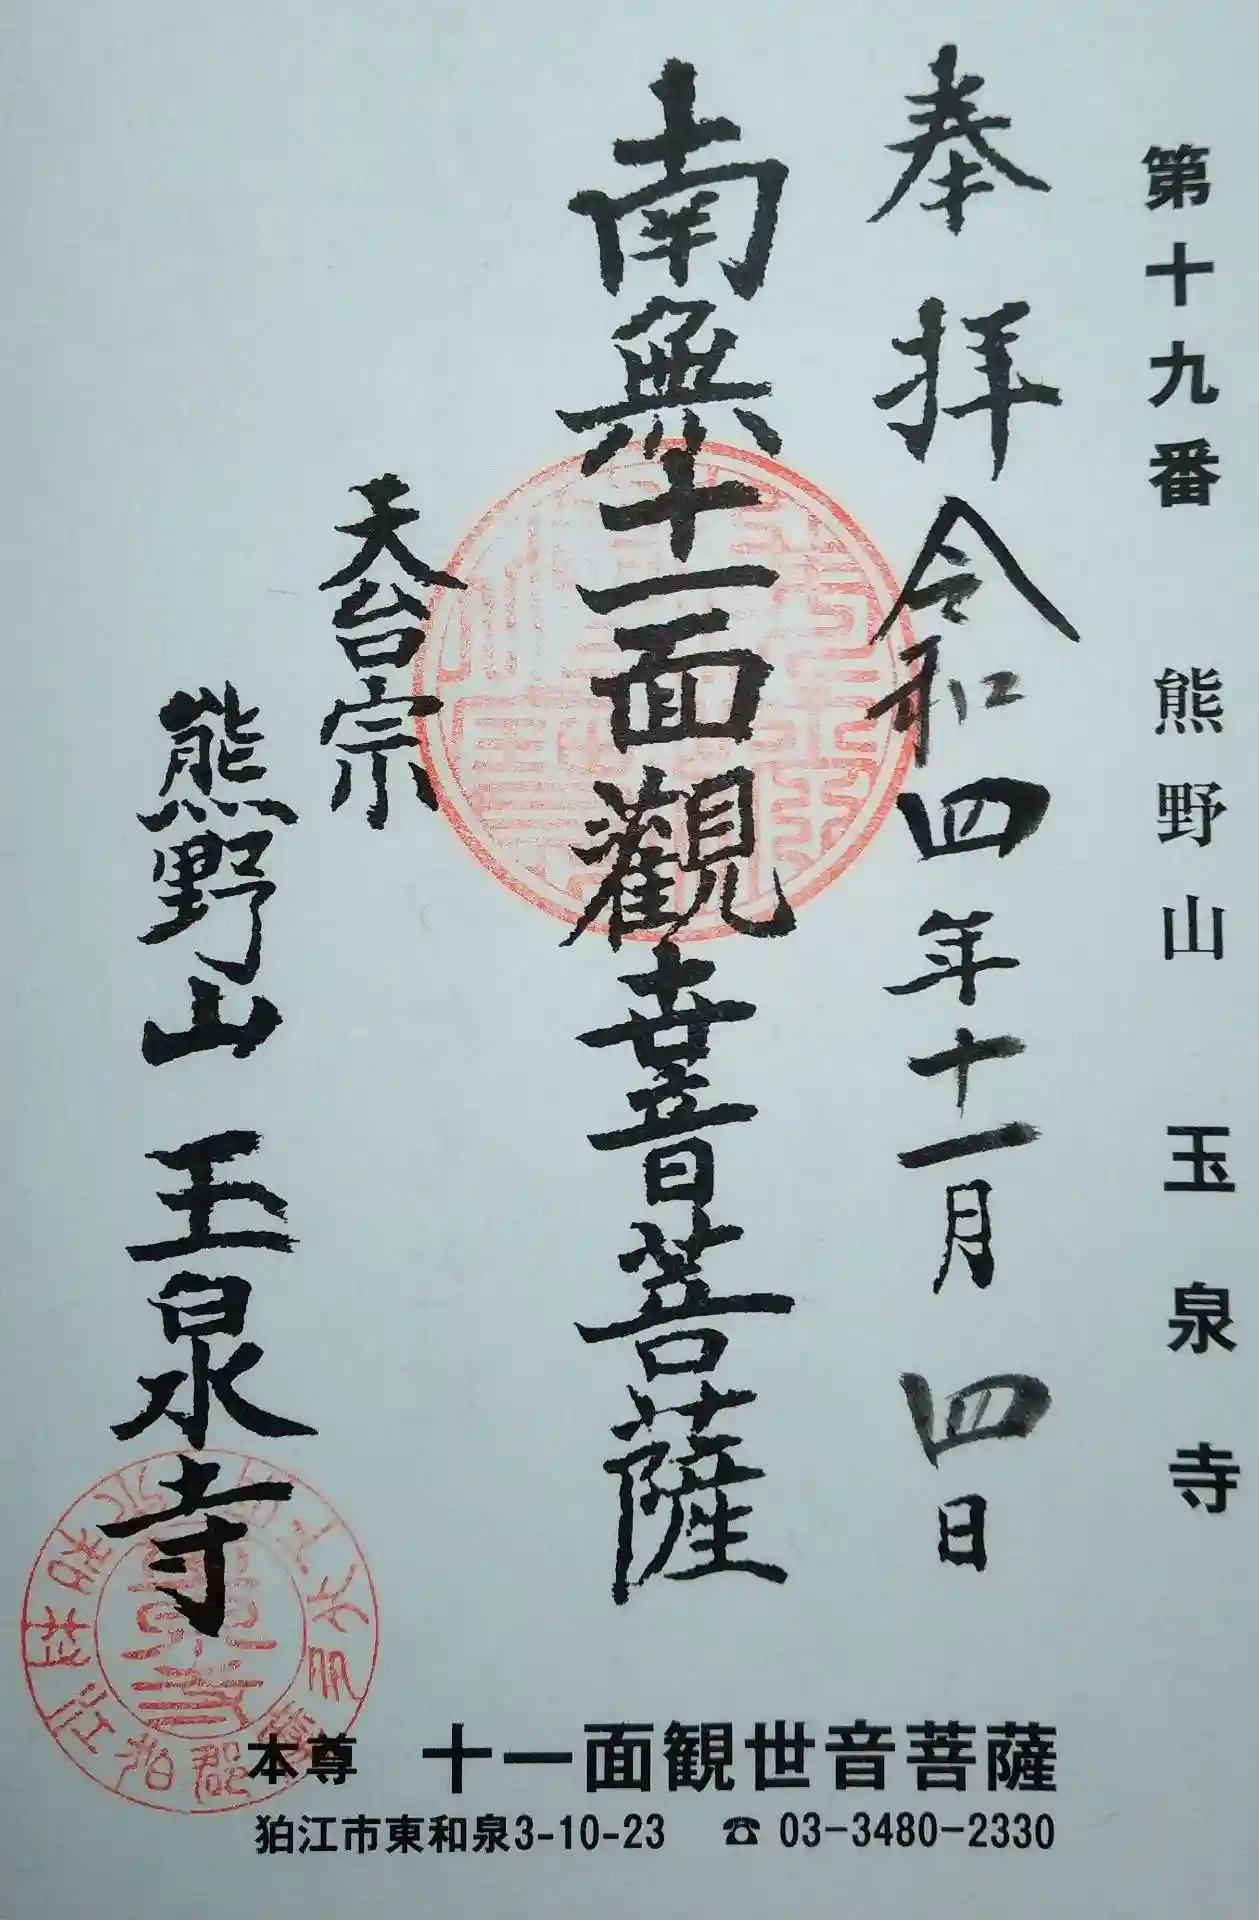 第十九番 熊野山 玉泉寺
奉拝 令和四年十一月四日
南無十一面觀世音菩薩
天台宗
熊野山 玉泉寺
郡狛江村和泉
本尊 十一面観世音菩薩
狛江市東和泉3-10-23 ☎ 03-3480-2330